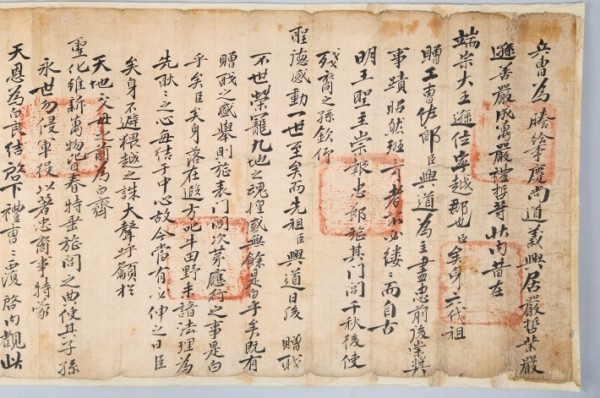 兵曹為謄給事慶尚道義興居嚴哲榮嚴
遜善嚴成萬嚴禮哲等狀內昔在
端宗大王遜位寧越郡也臣矣身六代祖
贈工曹佐郎臣興道為主盡忠前後崇奬
事蹟昭然班可考者不必縷縷而自古
明王聖主崇報忠節旌其門閭千秋後使
殘裔之孫欽仰
聖德感動一世至矣而先祖臣興道日後 贈職
不世榮寵九地之魂惶感無餘是白乎矣既有
贈職之盛舉則旌表門閭次第應行之事是白
乎矣臣矣身落在遐方 田野未諳法理為
先耿耿之心每結于中心故今當有必伸之日臣
矣身不避猥越之誅大聲呼籲於
天地父母之前為白齊
聖化維新萬物皆春特垂旌閭之典使其子孫
永世勿侵軍役以著忠裔事特蒙
天恩為白良結啓下禮曹禮曹覆啓內觀此